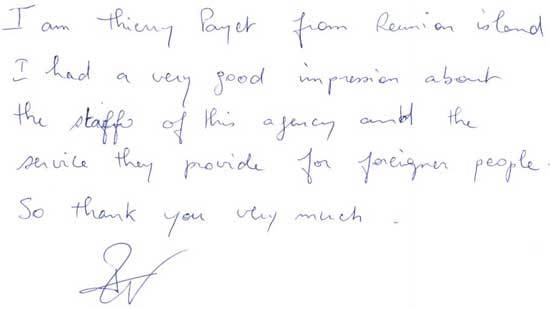 I am thierry Payet from Reunion island
I had a very good impression about
the staffs of this agency and the
service they provide for foreigner people.
So thank you very much.